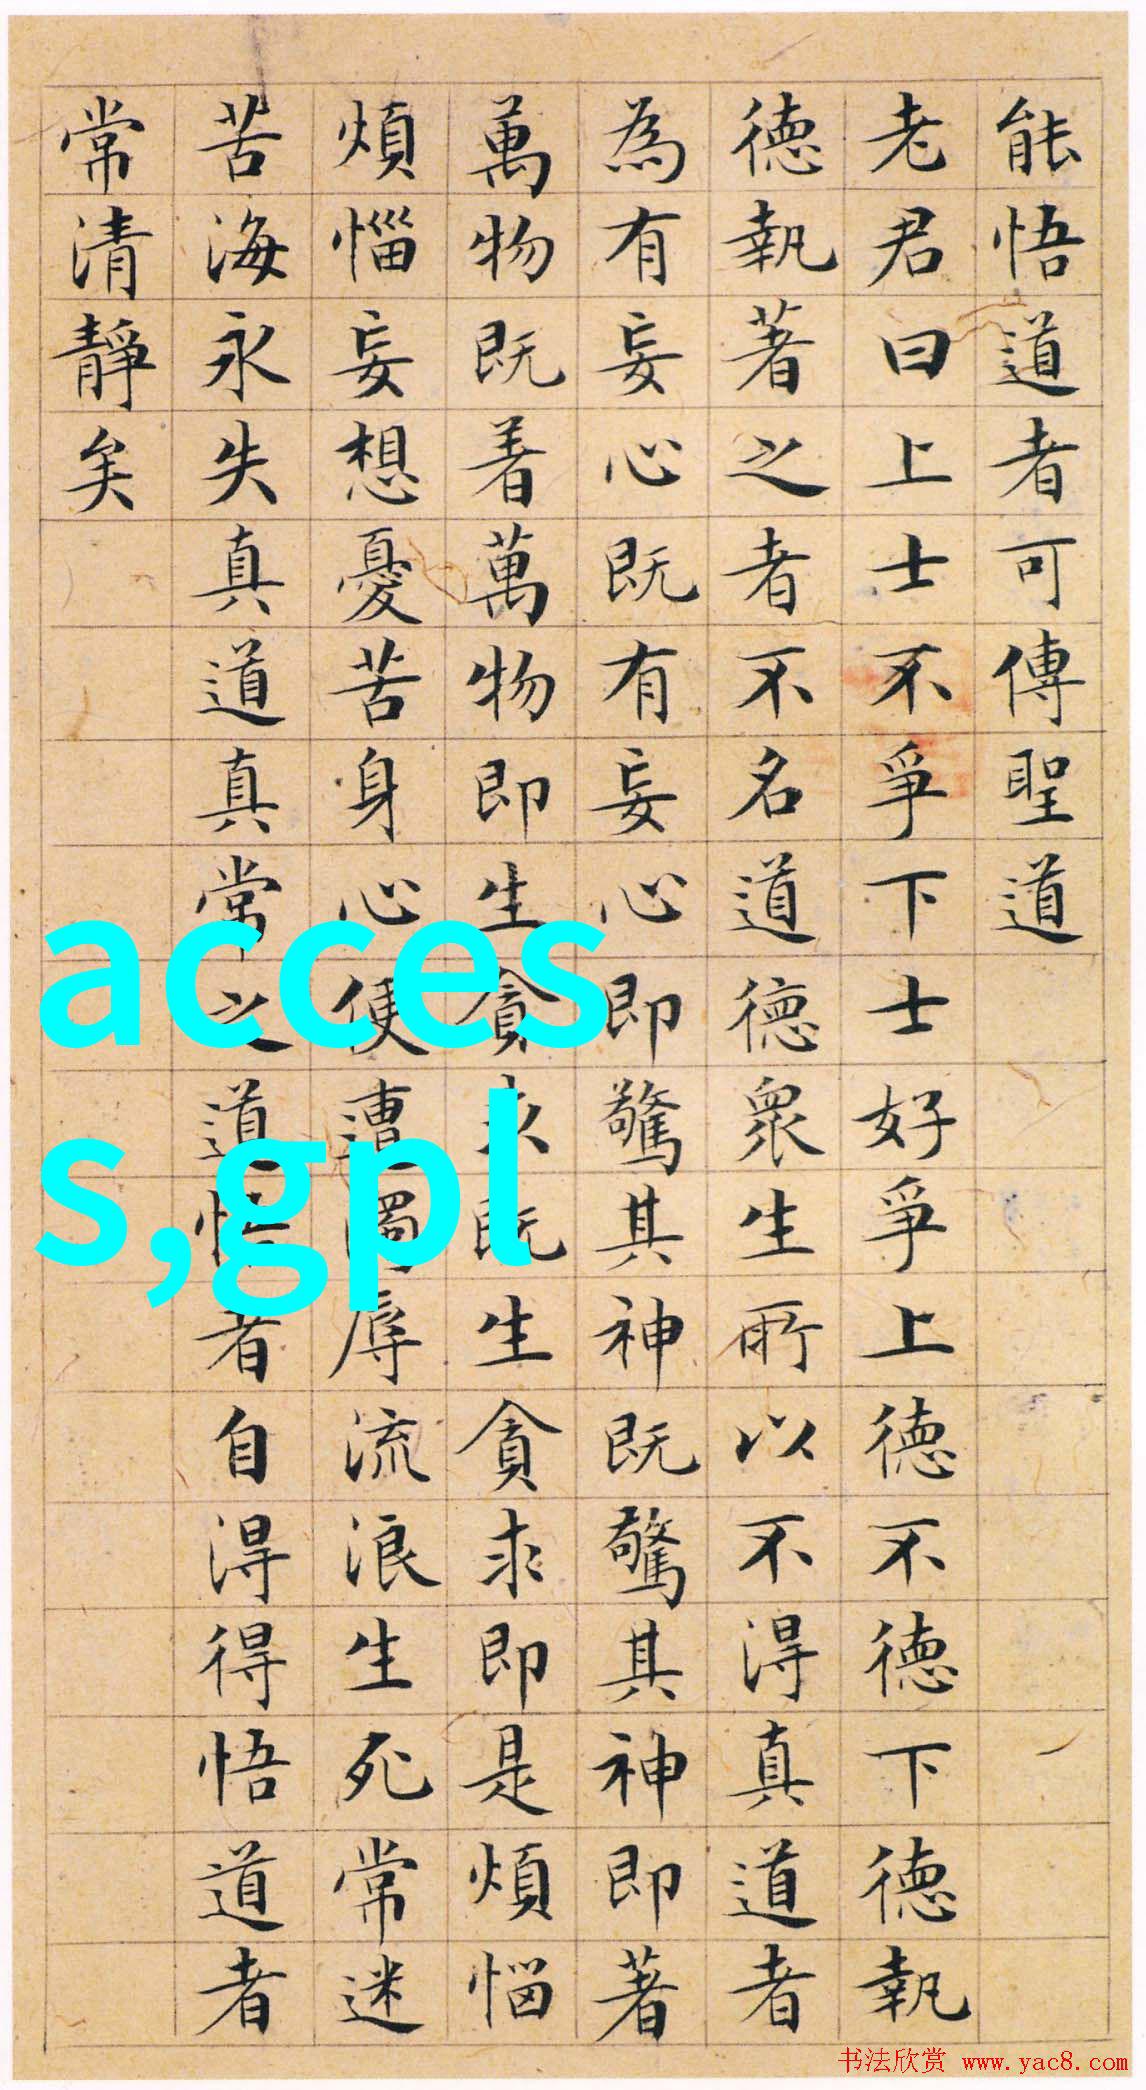 能悟道者可傳聖道
老君曰上士不爭下士好爭上德不德下德執
德執著之者不名道德眾生所以不得真道者
為有妄心既有妄心即驚其神既驚其神即著
萬物既着萬物即生貪求既生貪求即是煩惱
煩惱妄想憂苦身心便遭濁辱流浪生死常迷
苦海永失真道真常之道悟者自得得悟道者
常清靜矣
acces
s,gpl
书法欣赏 www.yac8.com